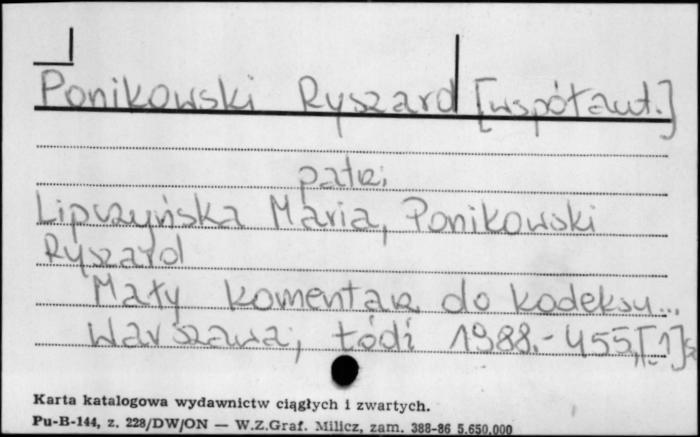 Ponikowski Ryszard [współaut.]
patrz
Lipczyńska Maria, Ponikowski
Ryszard
Mały komentarz do kodeksu...
Warszawa; Łódź 1988.- 455,[1]s
Karta katalogowa wydawnictw ciągłych i zwartych.
Pu-B-144, z. 228/DW/ON — W.Z.Graf. Milicz, zam. 388-86 5.650.000